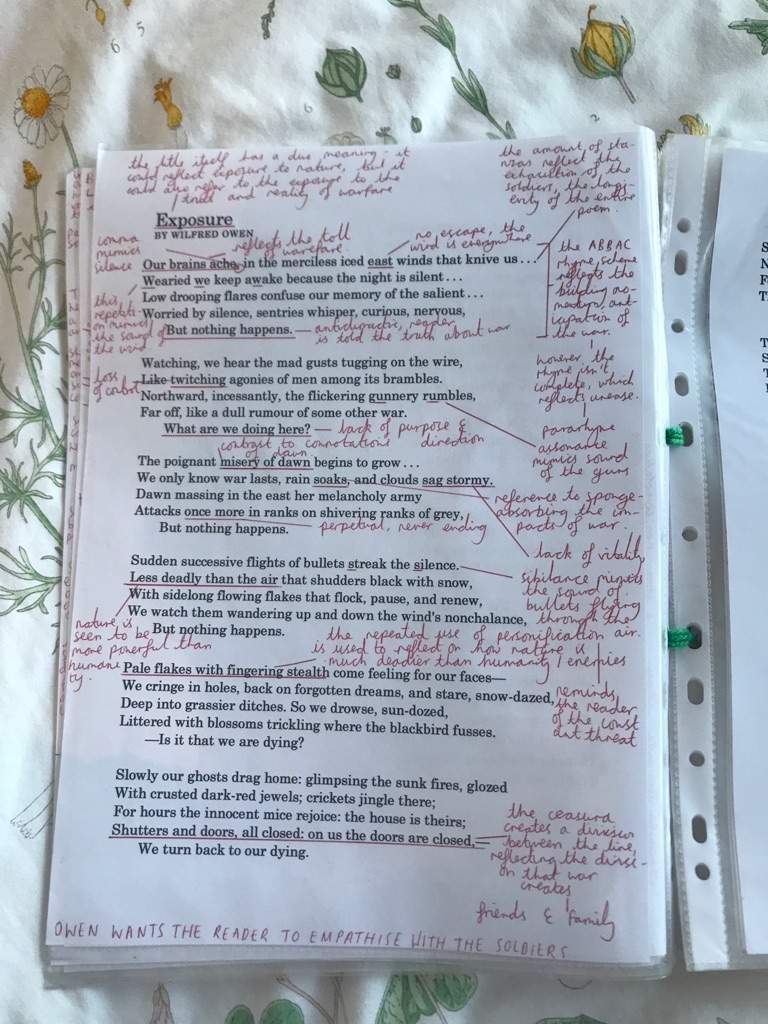 the title itself has a due meaning - it
could reflect exposure to nature, but it
could also refer to the exposure to the
truth and reality of warfare
the amount of sta-
nzas reflect the
exhaustion of the
soldiers, the long-
evity of the entire
poem.
Exposure
BY WILFRED OWEN
reflects the toll
of warfare
no escape, the
wind is everywhere
comma
mimics
silence
Our brains ache, in the merciless iced east winds that knive us . . .
Wearied we keep awake because the night is silent . . .
Low drooping flares confuse our memory of the salient . . .
Worried by silence, sentries whisper, curious, nervous,
But nothing happens.
anticlimactic, reader
is told the truth about war
this
repetiti-
on mimics
the sound of
the wind
the ABBAC
rhyme scheme
reflects the
building mo-
mentum, ant-
icipation of
the war.
Watching, we hear the mad gusts tugging on the wire,
Like twitching agonies of men among its brambles.
Northward, incessantly, the flickering gunnery rumbles,
Far off, like a dull rumour of some other war.
What are we doing here?
lack of purpose &
direction
loss
of control
however, the
rhyme isn't
complete, which
reflects unease.
pararhyme
assonance
mimics sound
of the guns
contrast to connotations
of dawn
The poignant misery of dawn begins to grow . . .
We only know war lasts, rain soaks, and clouds sag stormy.
Dawn massing in the east her melancholy army
Attacks once more in ranks on shivering ranks of grey,
But nothing happens.
perpetual, never ending
reference to sponge-
absorbing the im-
pacts of war.
lack of vitality
Sudden successive flights of bullets streak the silence.
Less deadly than the air that shudders black with snow,
With sidelong flowing flakes that flock, pause, and renew,
We watch them wandering up and down the wind's nonchalance,
But nothing happens.
sibilance mimics
the sound of
bullets flying
through the
air.
nature is
seen to be
more powerful than
humani
ty.
the repeated use of personification
is used to reflect on how nature is
much deadlier than humanity / enemies
Pale flakes with fingering stealth come feeling for our faces—
We cringe in holes, back on forgotten dreams, and stare, snow-dazed,
Deep into grassier ditches. So we drowse, sun-dozed,
Littered with blossoms trickling where the blackbird fusses.
—Is it that we are dying?
reminds
the reader
of the const
ant threat
Slowly our ghosts drag home: glimpsing the sunk fires, glozed
With crusted dark-red jewels; crickets jingle there;
For hours the innocent mice rejoice: the house is theirs;
Shutters and doors, all closed: on us the doors are closed,—
We turn back to our dying.
the ceasura
creates a division
between the line,
reflecting the divisi-
on that war
creates
friends & family
OWEN WANTS THE READER TO EMPATHISE WITH THE SOLDIERS